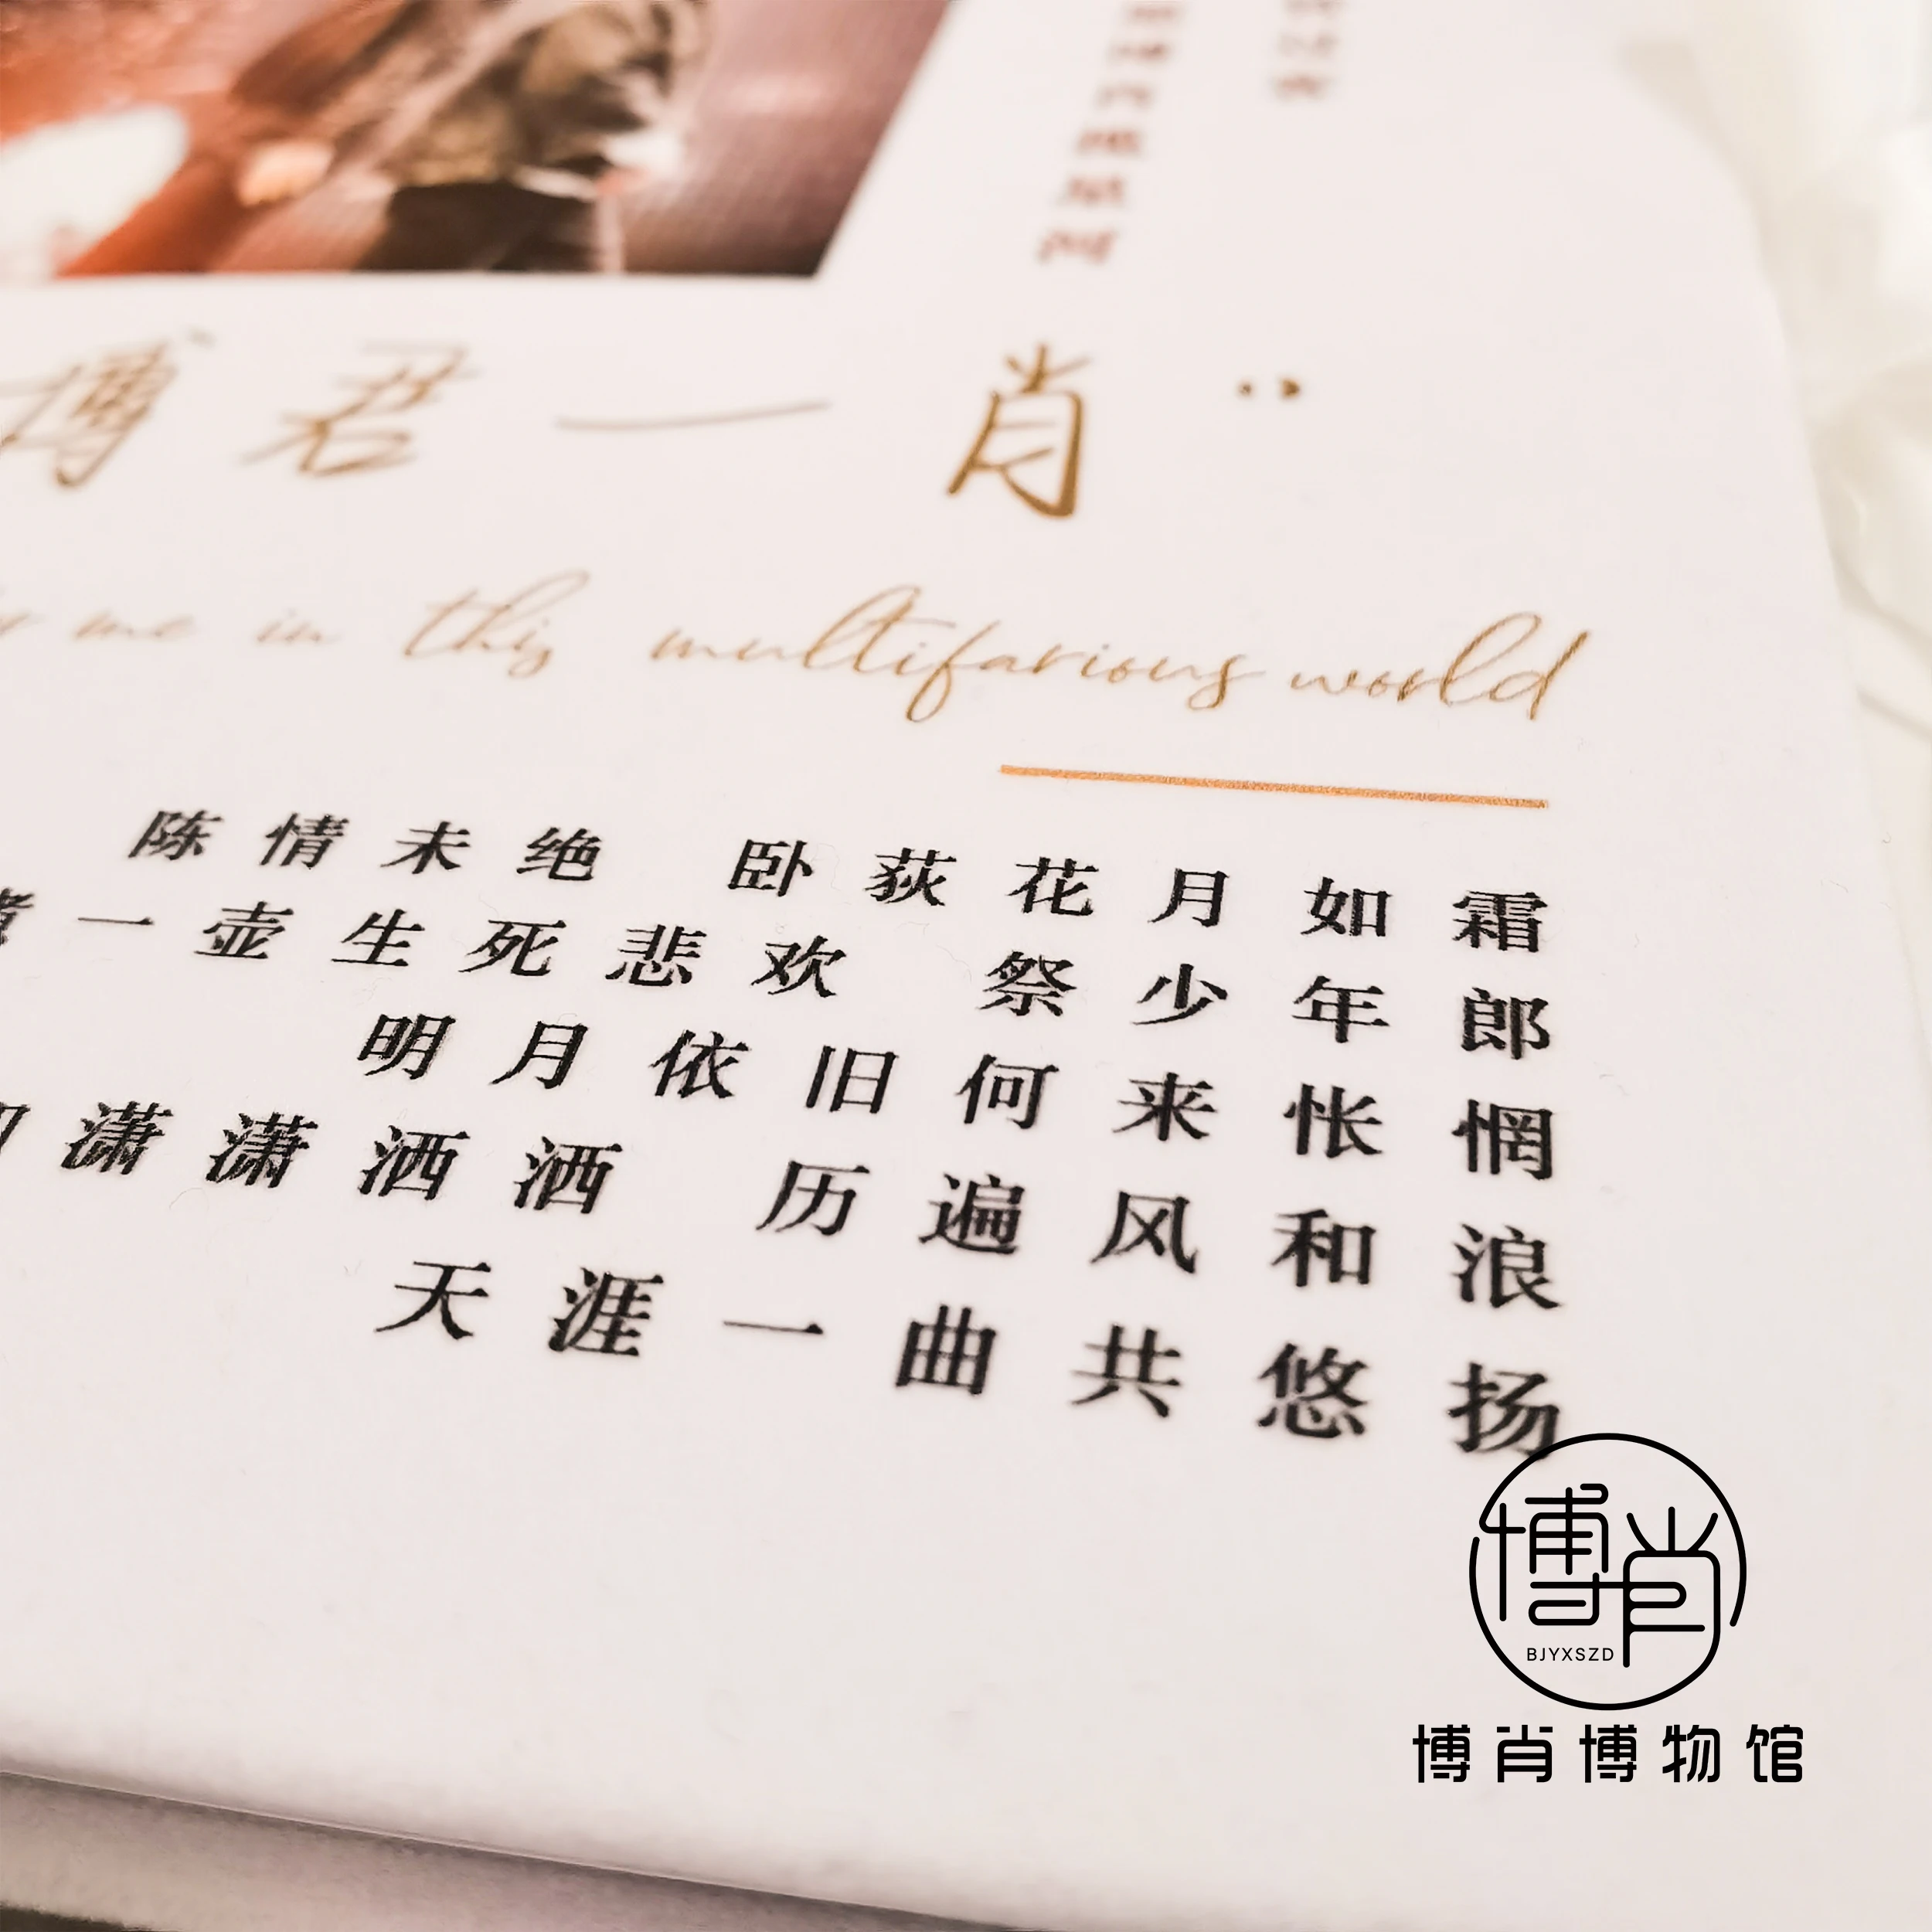 博君一肖
me in this multifarious world
陈情未绝 卧荻花月如霜
一壶生死悲欢 祭少年郎
明月依旧何来怅惘
潇潇洒洒 历遍风和浪
天涯一曲共悠扬
博肖
BJYXSZD
博肖博物馆